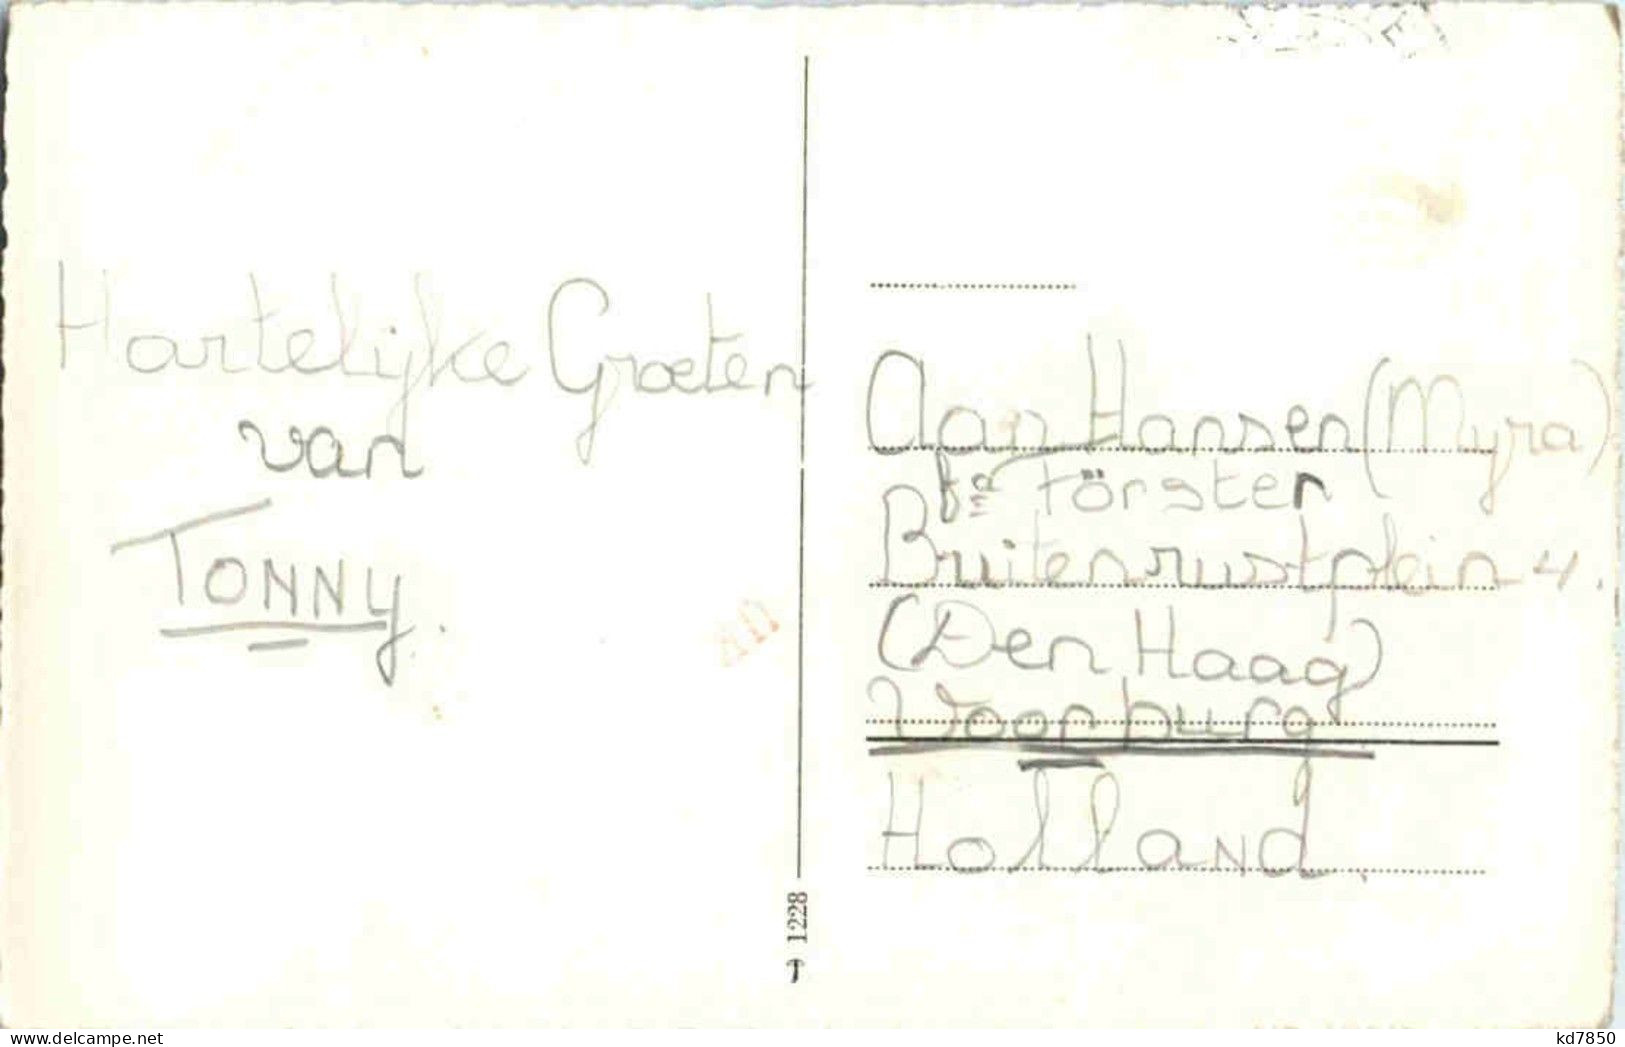 Hartelijke Groeten
van
TONNY.
Aan Hansen (Myra)
Förster
Buitenrustplein 4.
(Den Haag)
Voorburg
Holland.
1228
kd7850